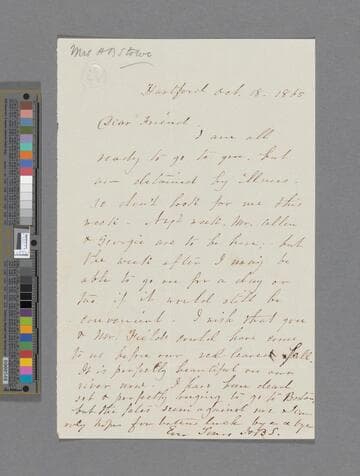 Mrs H B Stowe
Hartford Oct. 18 - 1865
Dear Friend -
I am all
ready to go to you. but
am detained by illness -
so don't look for me this
week - Next week. Mr. Allen
& Georgie are to be here - but
the week after I may be
able to go on for a day or
two if it would still be
convenient - I wish that you
& Mr. Fields could have come
to us before our red leaves fall.
It is perfectly beautiful on our
river now - I have been dead
set & perfectly longing to go to Boston
but the fates seem against me & I can
only hope for better luck by & bye
Ever Yours HBS.